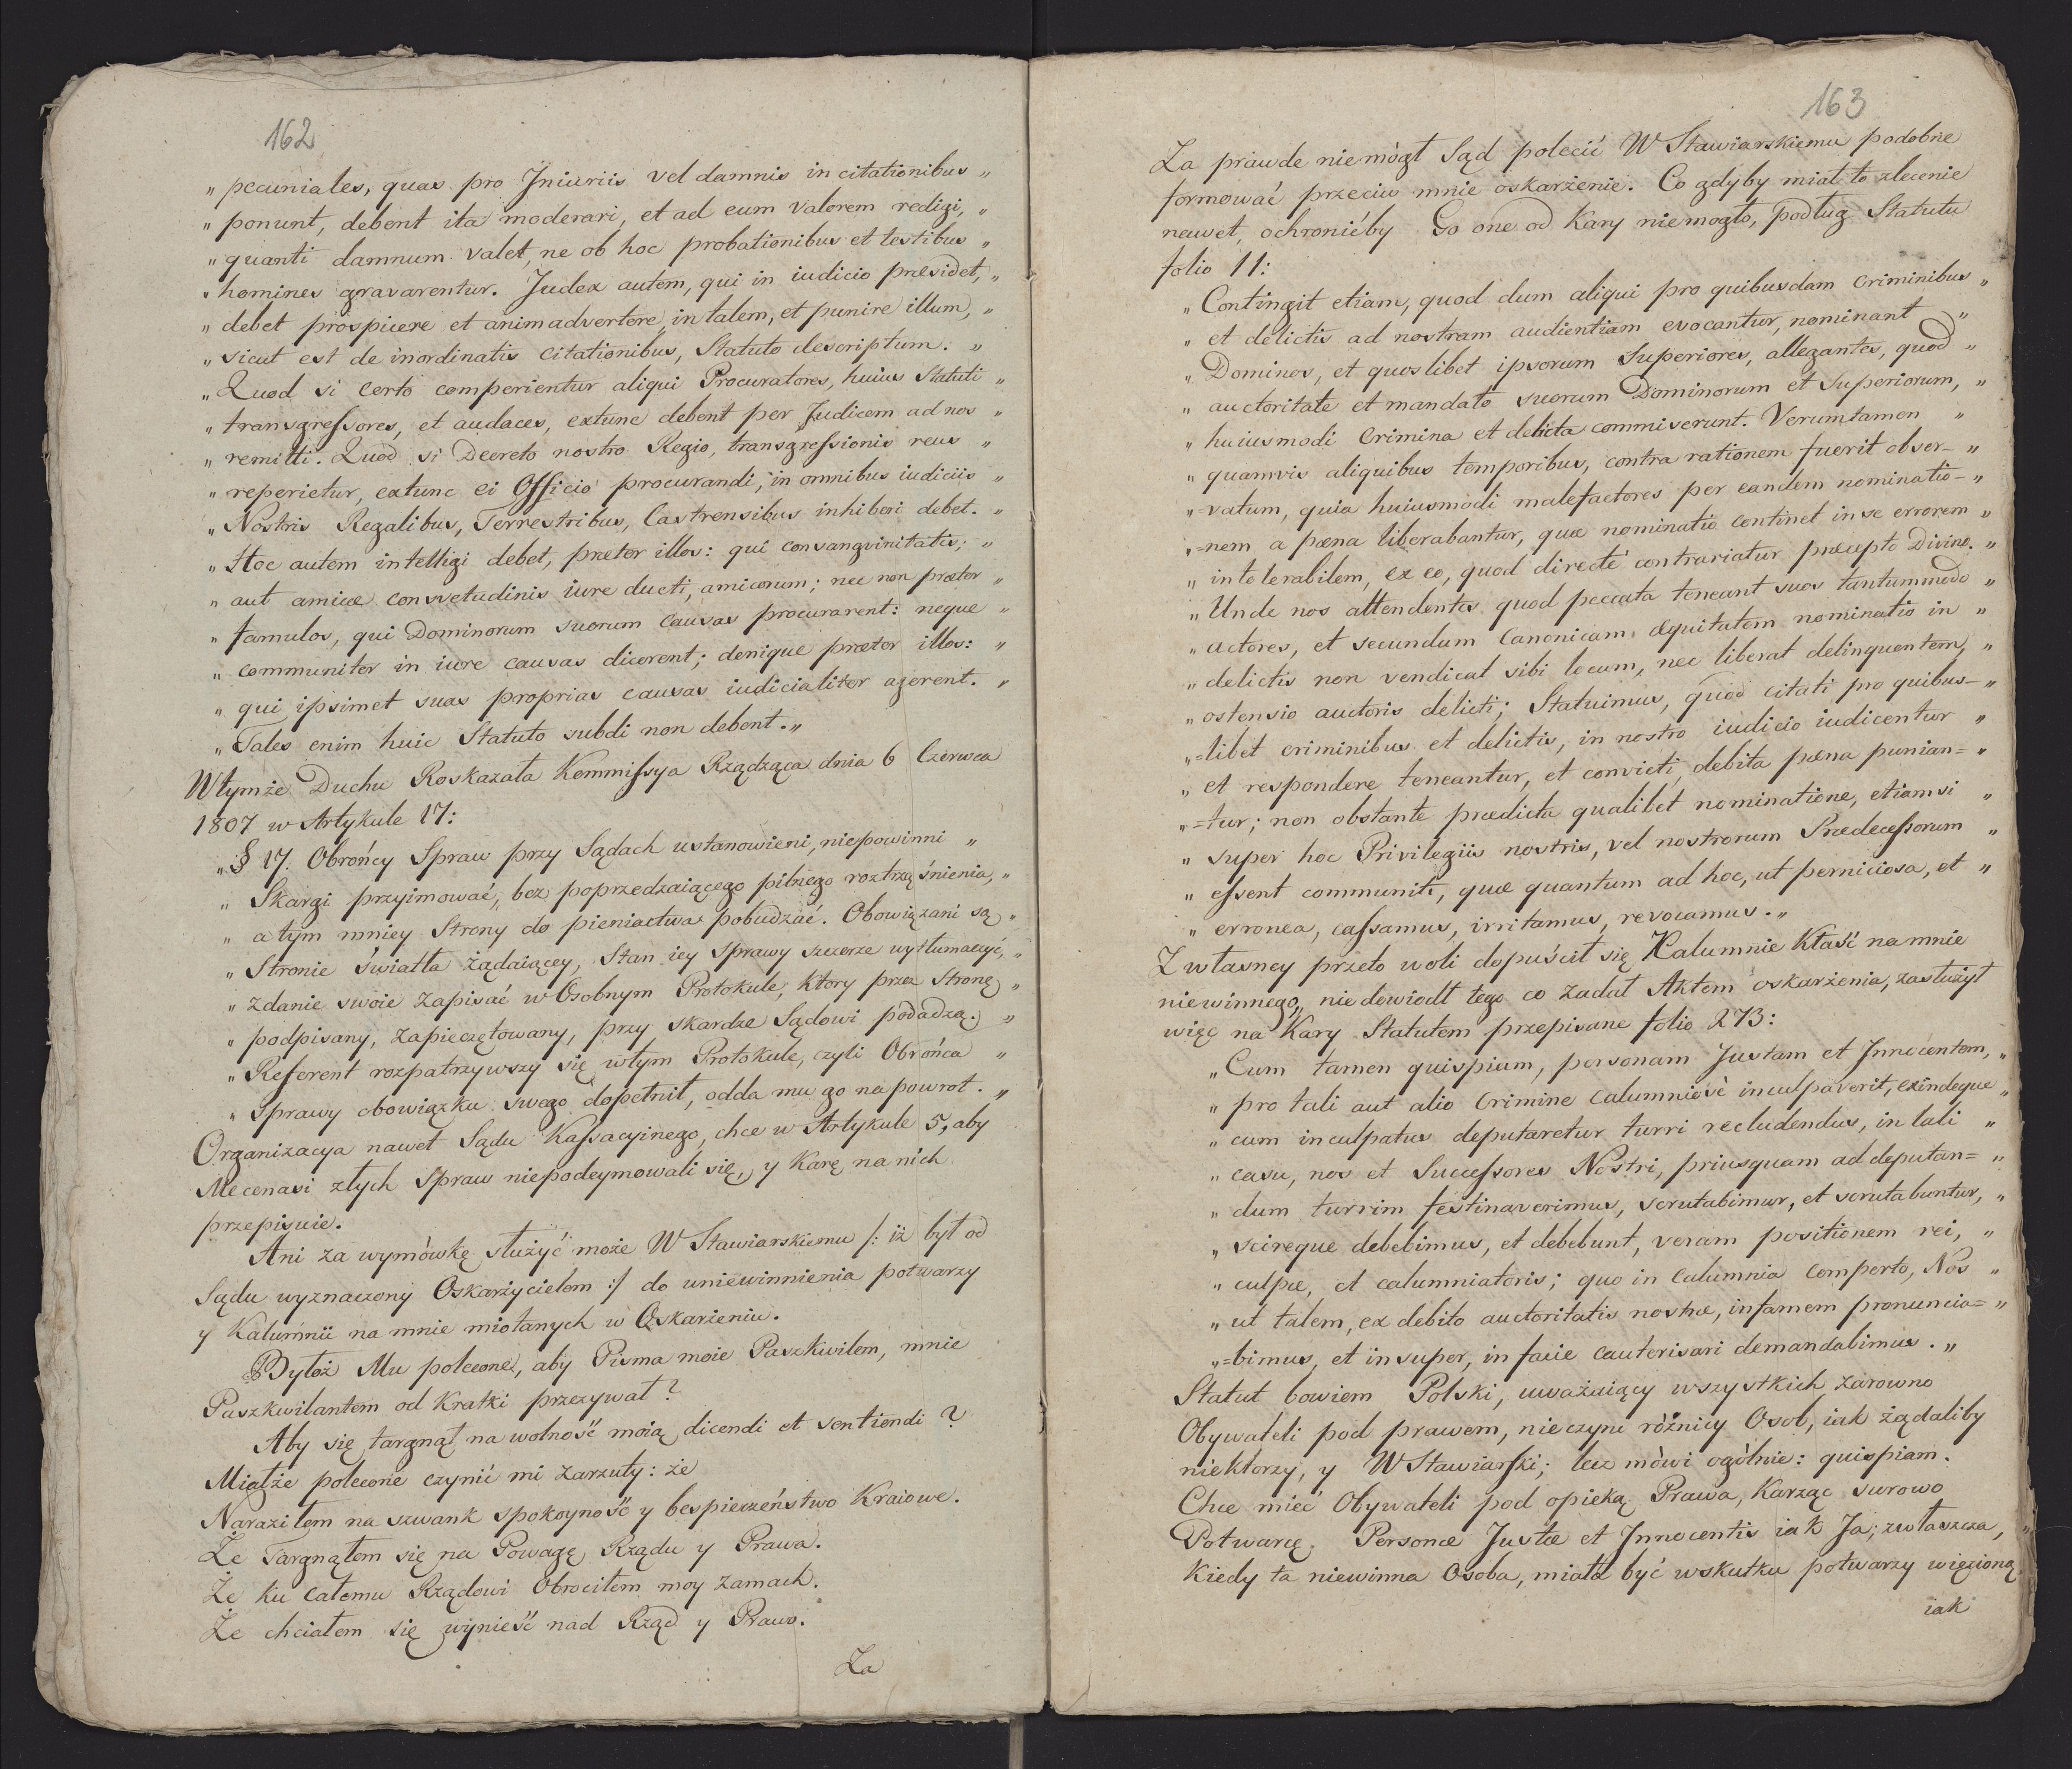 162
„ pecuniales, quas pro Iniuriis vel damnis in citationibus „
„ ponunt, debent ita moderari, et ad eum valorem redigi, „
„ quanti damnum valet, ne ob hoc probationibus et testibus „
„ homines gravarentur. Judex autem, qui in iudicio præsidet, „
„ debet prospicere et animadvertere in talem, et punire illum, „
„ sicut est de inordinatis citationibus, Statuto descriptum. „
„ Quod si certo comperientur aliqui Procuratores, huius Statuti „
„ transgressores, et audaces, extunc debent per Judicem ad nos „
„ remitti. Quod si Decreto nostro Regio, transgressionis reus „
„ reperietur, extunc ei Officio procurandi, in omnibus iudiciis „
„ Nostris Regalibus, Terrestribus, Castrensibus inhiberi debet. „
„ Hoc autem intelligi debet, præter illos: qui consangvinitatis; „
„ aut amicæ consvetudinis iure ducti, amicorum; nec non præter „
„ famulos, qui Dominorum suorum causas procurarent: neque „
„ communiter in iure causas dicerent; denique præter illos: „
„ qui ipsimet suas proprias causas iudicialiter agerent. „
„ Tales enim huic Statuto subdi non debent. „
W tymże Duchu Roskazała Kommissya Rządząca dnia 6 Czerwca
1807 w Artykule 17:
„ § 17. Obrońcy Spraw przy Sądach ustanowieni, niepowinni „
„ Skargi przyimować, bez poprzedzaiącego pilnego roztrząśnienia, „
„ a tym mniey Strony do pieniactwa pobudzać. Obowiązani są „
„ Stronie światła żądaiącey, Stan iey sprawy szczerze wytłumaczyć, „
„ zdanie swoie zapisać w Osobnym Protokule, ktory przez Stronę „
„ podpisany, zapieczętowany, przy skardze Sądowi podadzą. „
„ Referent rozpatrzywszy się w tym Protokule, czyli Obrońca „
„ sprawy obowiązku swego dopełnił, odda mu go na powrot. „
Organizacya nawet Sądu Kassacyinego, chce w Artykule 5, aby
Mecenasi złych Spraw niepodeymowali się, y Karę na nich
przepisuie.
Ani za wymówkę służyć może W Stawiarskiemu /: iż był od
Sądu wyznaczony Oskarzycielem :/ do uniewinnienia potwarzy
y Kalumnii na mnie miotanych w Oskarżeniu.
Byłoż Mu polecone, aby Pisma moie Paszkwilem, mnie
Paszkwilantem od Kratki przezywał?
Aby się targnął na wolność moią dicendi et sentiendi?
Miałże polecone czynić mi zarzuty: że
Naraziłem na szwank spokoyność y bespieczeństwo Kraiowe.
Że Targnąłem się na Powagę Rządu y Prawa.
Że ku całemu Rządowi Obrociłem moy zamach.
Że chciałem się wynieść nad Rząd y Prawo.
Za
163
Za prawde niemógł Sąd polecić W Stawiarskiemu podobne
formować przeciw mnie oskarżenie. Co gdyby miał to zlecenie
nawet, ochronićby Go one od Kary niemogło, podług Statutu
folio 11:
„ Contingit etiam, quod dum aliqui pro quibusdam Criminibus „
„ et delictis ad nostram audientiam evocantur, nominant „
„ Dominos, et quoslibet ipsorum Superiores, allegantes, quod „
„ auctoritate et mandato suorum Dominorum et Superiorum, „
„ huiusmodi Crimina et delicta commiserunt. Verumtamen „
„ quamvis aliquibus temporibus, contra rationem fuerit obser- „
„ =vatum, quia huiusmodi malefactores per eandem nominatio- „
„ =nem a pœna liberabantur, quæ nominatio continet in se errorem „
„ intolerabilem, ex eo, quod directè contrariatur præcepto Divino. „
„ Unde nos attendentes quod peccata teneant suos tantummodo „
„ actores, et secundum Canonicam æquitatem nominatio in „
„ delictis non vendicat sibi locum, nec liberat delinquentem, „
„ ostensio auctoris delicti; Statuimus, quod citati pro quibus- „
„ =libet criminibus et delictis, in nostro iudicio iudicentur „
„ et respondere teneantur, et convicti, debita pœna punian= „
„ =tur; non obstante prædicta qualibet nominatione, etiamsi „
„ super hoc Privilegiis nostris, vel nostrorum Prædecessorum „
„ essent communiti, quæ quantum ad hoc, ut perniciosa, et „
„ erronea, cassamus, irritamus, revocamus. „
Z własney przeto woli dopuścił się Kalumnie Kłaść na mnie
niewinnego, nie dowiodł tego co zadał Aktem oskarżenia, zasłużył
więc na Kary Statutem przepisane folio 273:
„ Cum tamen quispiam, personam Justam et Innocentem, „
„ pro tali aut alio Crimine calumniosè inculpaverit, exindeque „
„ cum inculpatus deputaretur turri recludendus, in tali „
„ casu, nos et Successores Nostri, priusquam ad deputan= „
„ dum turrim festinaverimus, scrutabimur, et scrutabuntur, „
„ scireque debebimus, et debebunt, veram positionem rei, „
„ culpæ, et calumniatoris; quo in Calumnia comperto, Nos „
„ ut talem, ex debito auctoritatis nostræ, infamem pronuncia= „
„ =bimus, et insuper, in facie cauterisari demandabimus. „
Statut bowiem Polski, uważaiący wszystkich zarowno
Obywateli pod prawem, nie czyni różnicy Osob, iak żądaliby
niektorzy, y W Stawiarski; lecz mówi ogólnie: quispiam.
Chce mieć Obywateli pod opieką Prawa, Karząc surowo
Potwarcę. Personæ Justæ et Innocentis iak Ja; zwłaszcza,
Kiedy ta niewinna Osoba, miała być w skutku potwarzy więzioną
iak